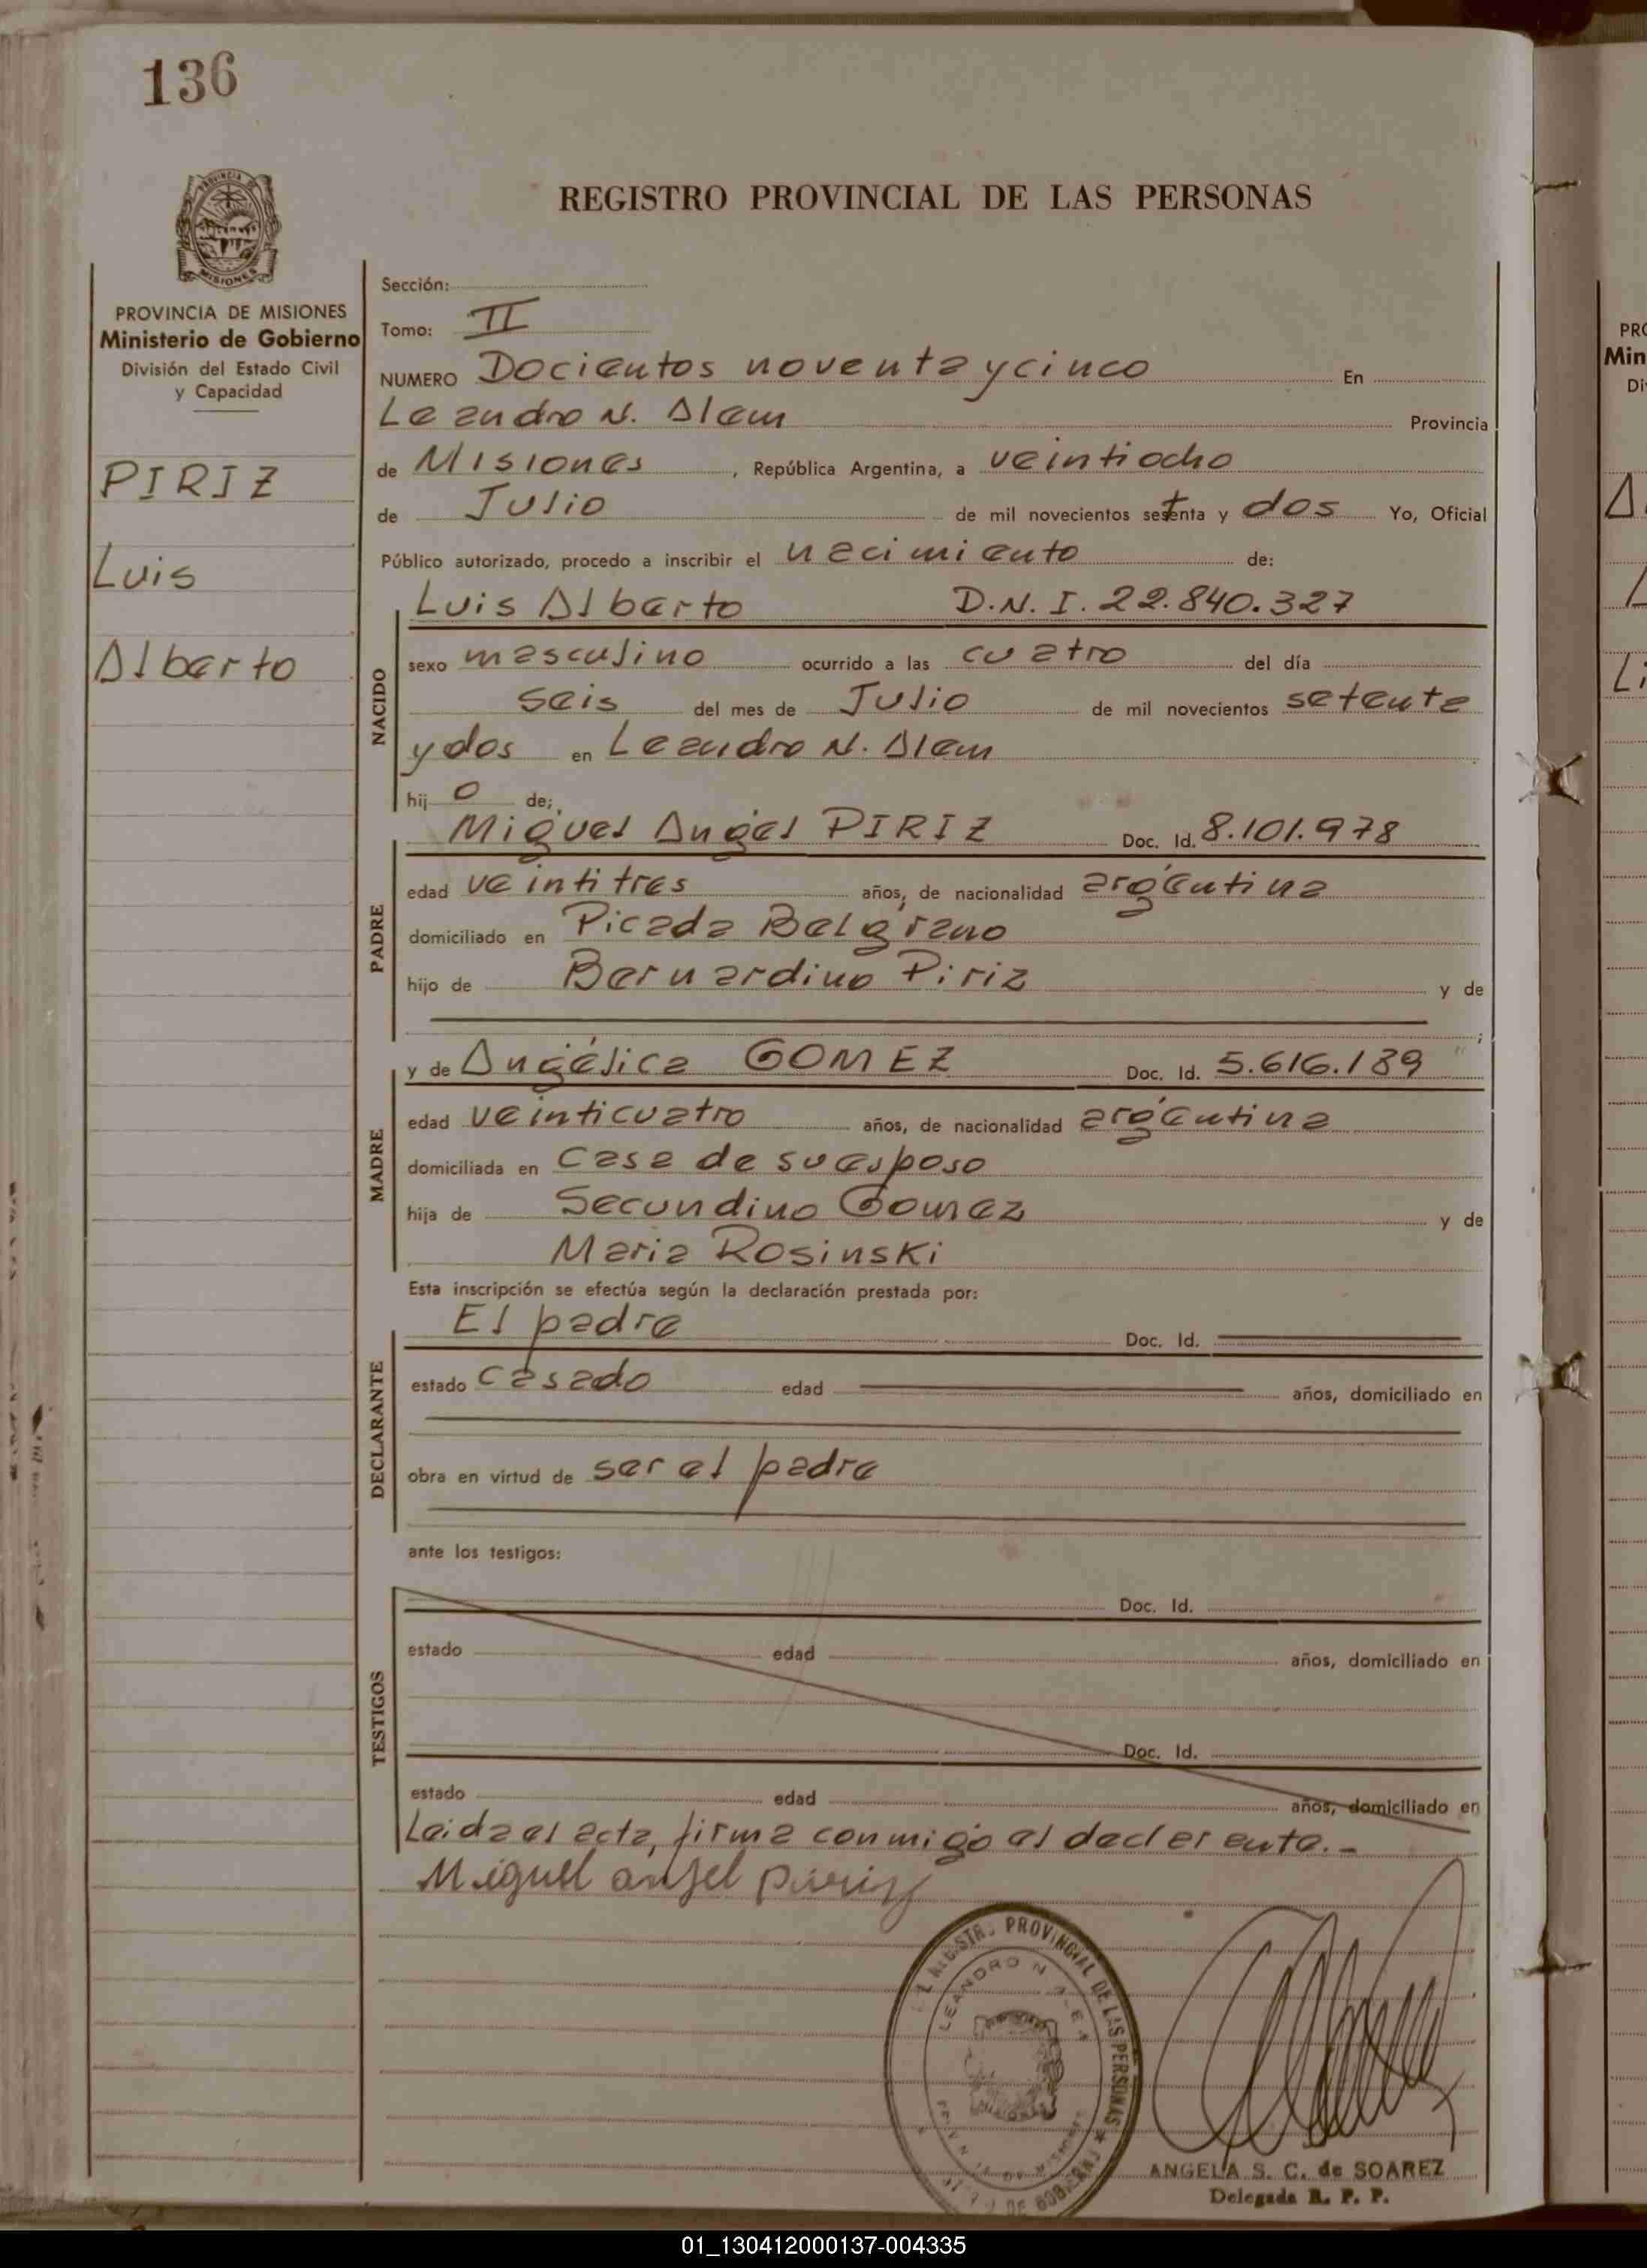 136
PROVINCIA DE MISIONES
REGISTRO PROVINCIAL DE LAS PERSONAS
PROVINCIA DE MISIONES
Ministerio de Gobierno
División del Estado Civil
y Capacidad
PIRIZ
Luis
Alberto
Sección:
Tomo: II
NUMERO Docientos noventa y cinco En
Leandro N. Alem Provincia
de Misiones, República Argentina, a veintiocho
de Julio de mil novecientos setenta y dos Yo, Oficial
Público autorizado, procedo a inscribir el nacimiento de:
Luis Alberto D.N.I. 22.840.327
NACIDO
sexo masculino ocurrido a las cuatro del día
seis del mes de Julio de mil novecientos setenta
y dos en Leandro N. Alem
hij o de;
Miguel Angel PIRIZ Doc. Id. 8.101.978
PADRE
edad veintitres años, de nacionalidad argentina
domiciliado en Picada Belgrano
hijo de Bernardino Piriz y de
;
y de Angélica GOMEZ Doc. Id. 5.616.189
MADRE
edad veinticuatro años, de nacionalidad argentina
domiciliada en Casa de su esposo
hija de Secundino Gomez y de
Maria Rosinski
Esta inscripción se efectúa según la declaración prestada por:
El padre Doc. Id.
DECLARANTE
estado casado edad años, domiciliado en
obra en virtud de ser el padre
ante los testigos:
Doc. Id.
TESTIGOS
estado edad años, domiciliado en
Doc. Id.
estado edad años, domiciliado en
Leida el acta, firma conmigo el declarente.-
Miguel angel piriz
REGISTRO PROVINCIAL DE LAS PERSONAS
LEANDRO N ALEM
ANGELA S. C. de SOAREZ
Delegada R. P. P.
PRO
Min
Di
A
L
Li
01_130412000137-004335